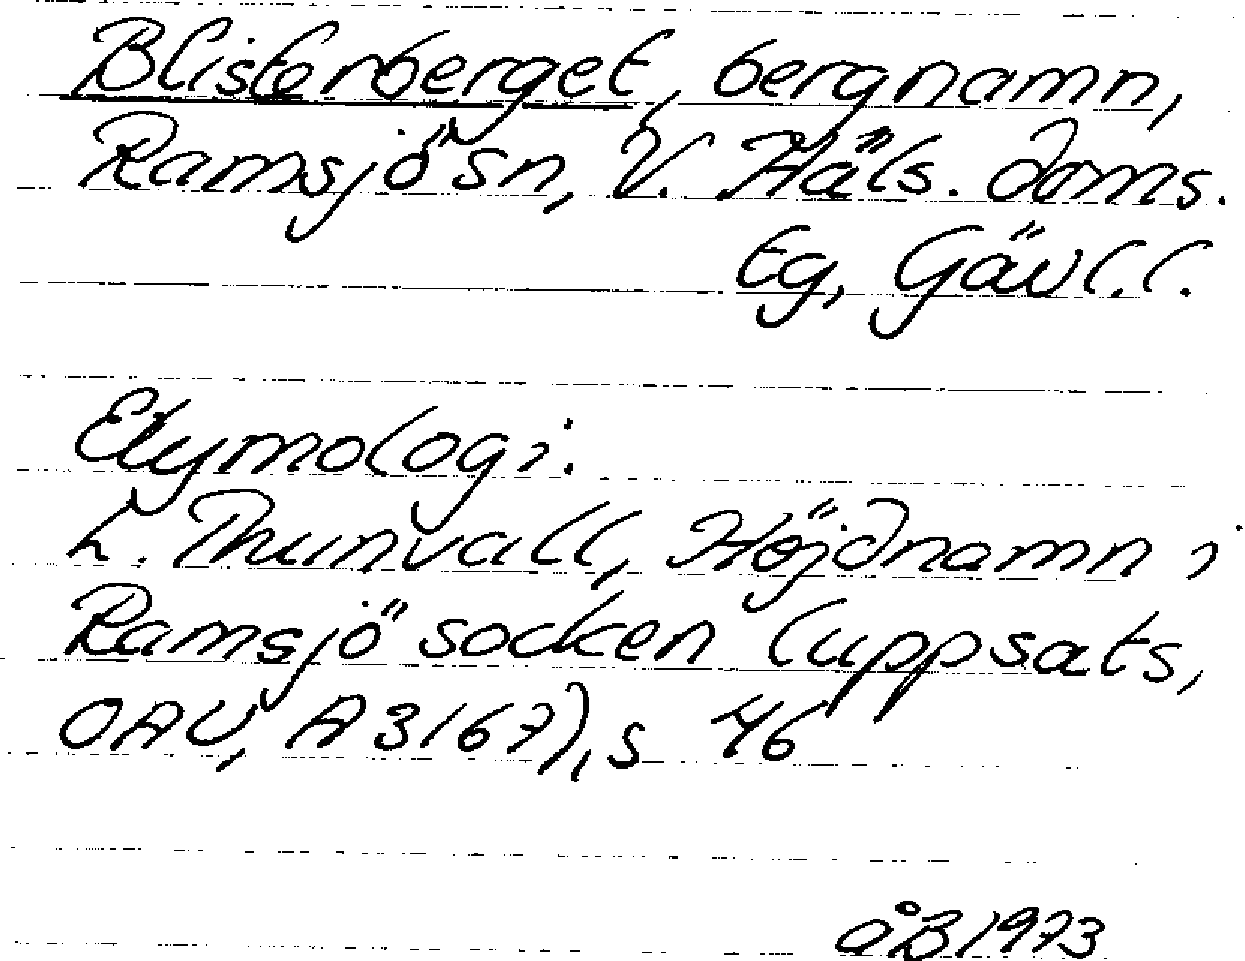 Blisterberget, bergnamn,
Ramsjö sn, V. Häls. doms.
Eg, Gävl.l.
Etymologi:
L. Thunvall, Höjdnamn i
Ramsjö socken (uppsats,
OAU, A 3167), s 46
ÅB 1973